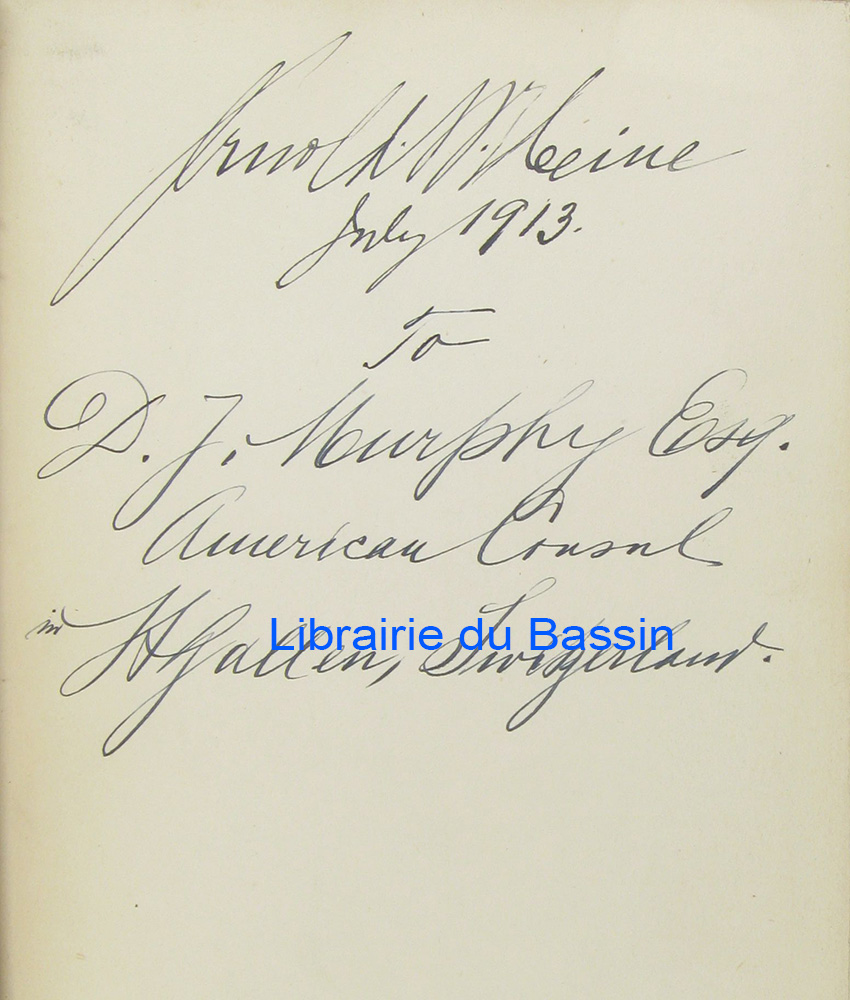 Arnold. B. Heine
July 1913.
To
D. J. Murphy Esq.
American Consul
in St Gallen, Switzerland.
Librairie du Bassin